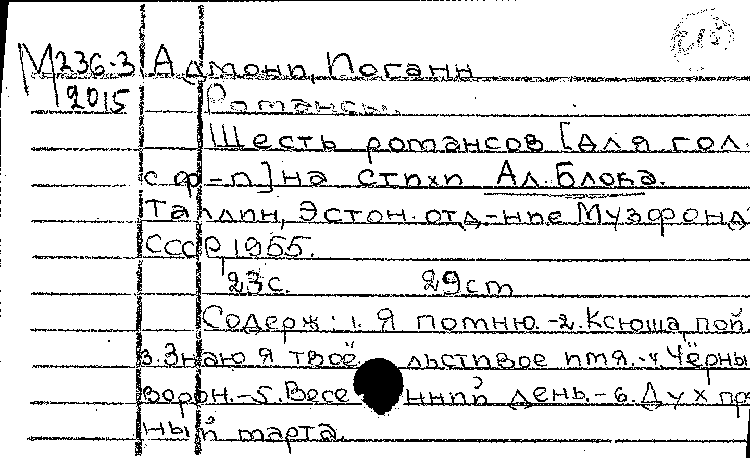 М236-3 Адмони, Иоганн
2015 Романсы.
Шесть романсов [для гол.
с ф-п] на стихи Ал. Блока.
Таллин, Эстон. отд-ние Музфонд
СССР, 1955.
23с. 29см
Содерж: 1. Я помню. -2. Ксюша, пой.
3. Знаю я твоё льстивое имя. -4. Чёрны
ворон. -5. Весенний день. -6. Дух пр
ный марта.